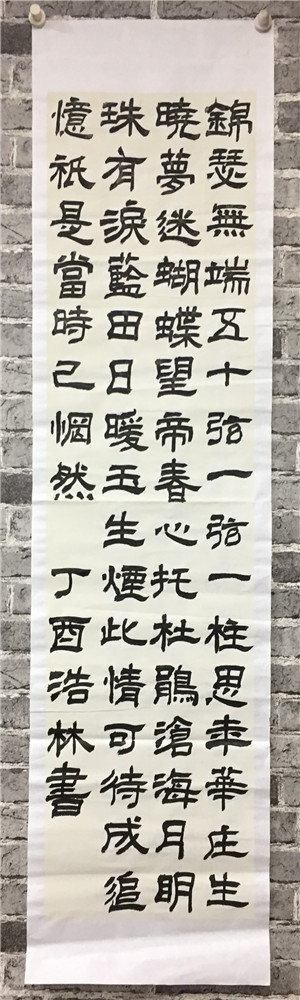 錦瑟無端五十弦一弦一柱思年華庄生
曉夢迷蝴蝶望帝春心托杜鵑滄海月明
珠有淚藍田日暖玉生煙此情可待成追
憶祇是當時已惘然 丁酉浩林書